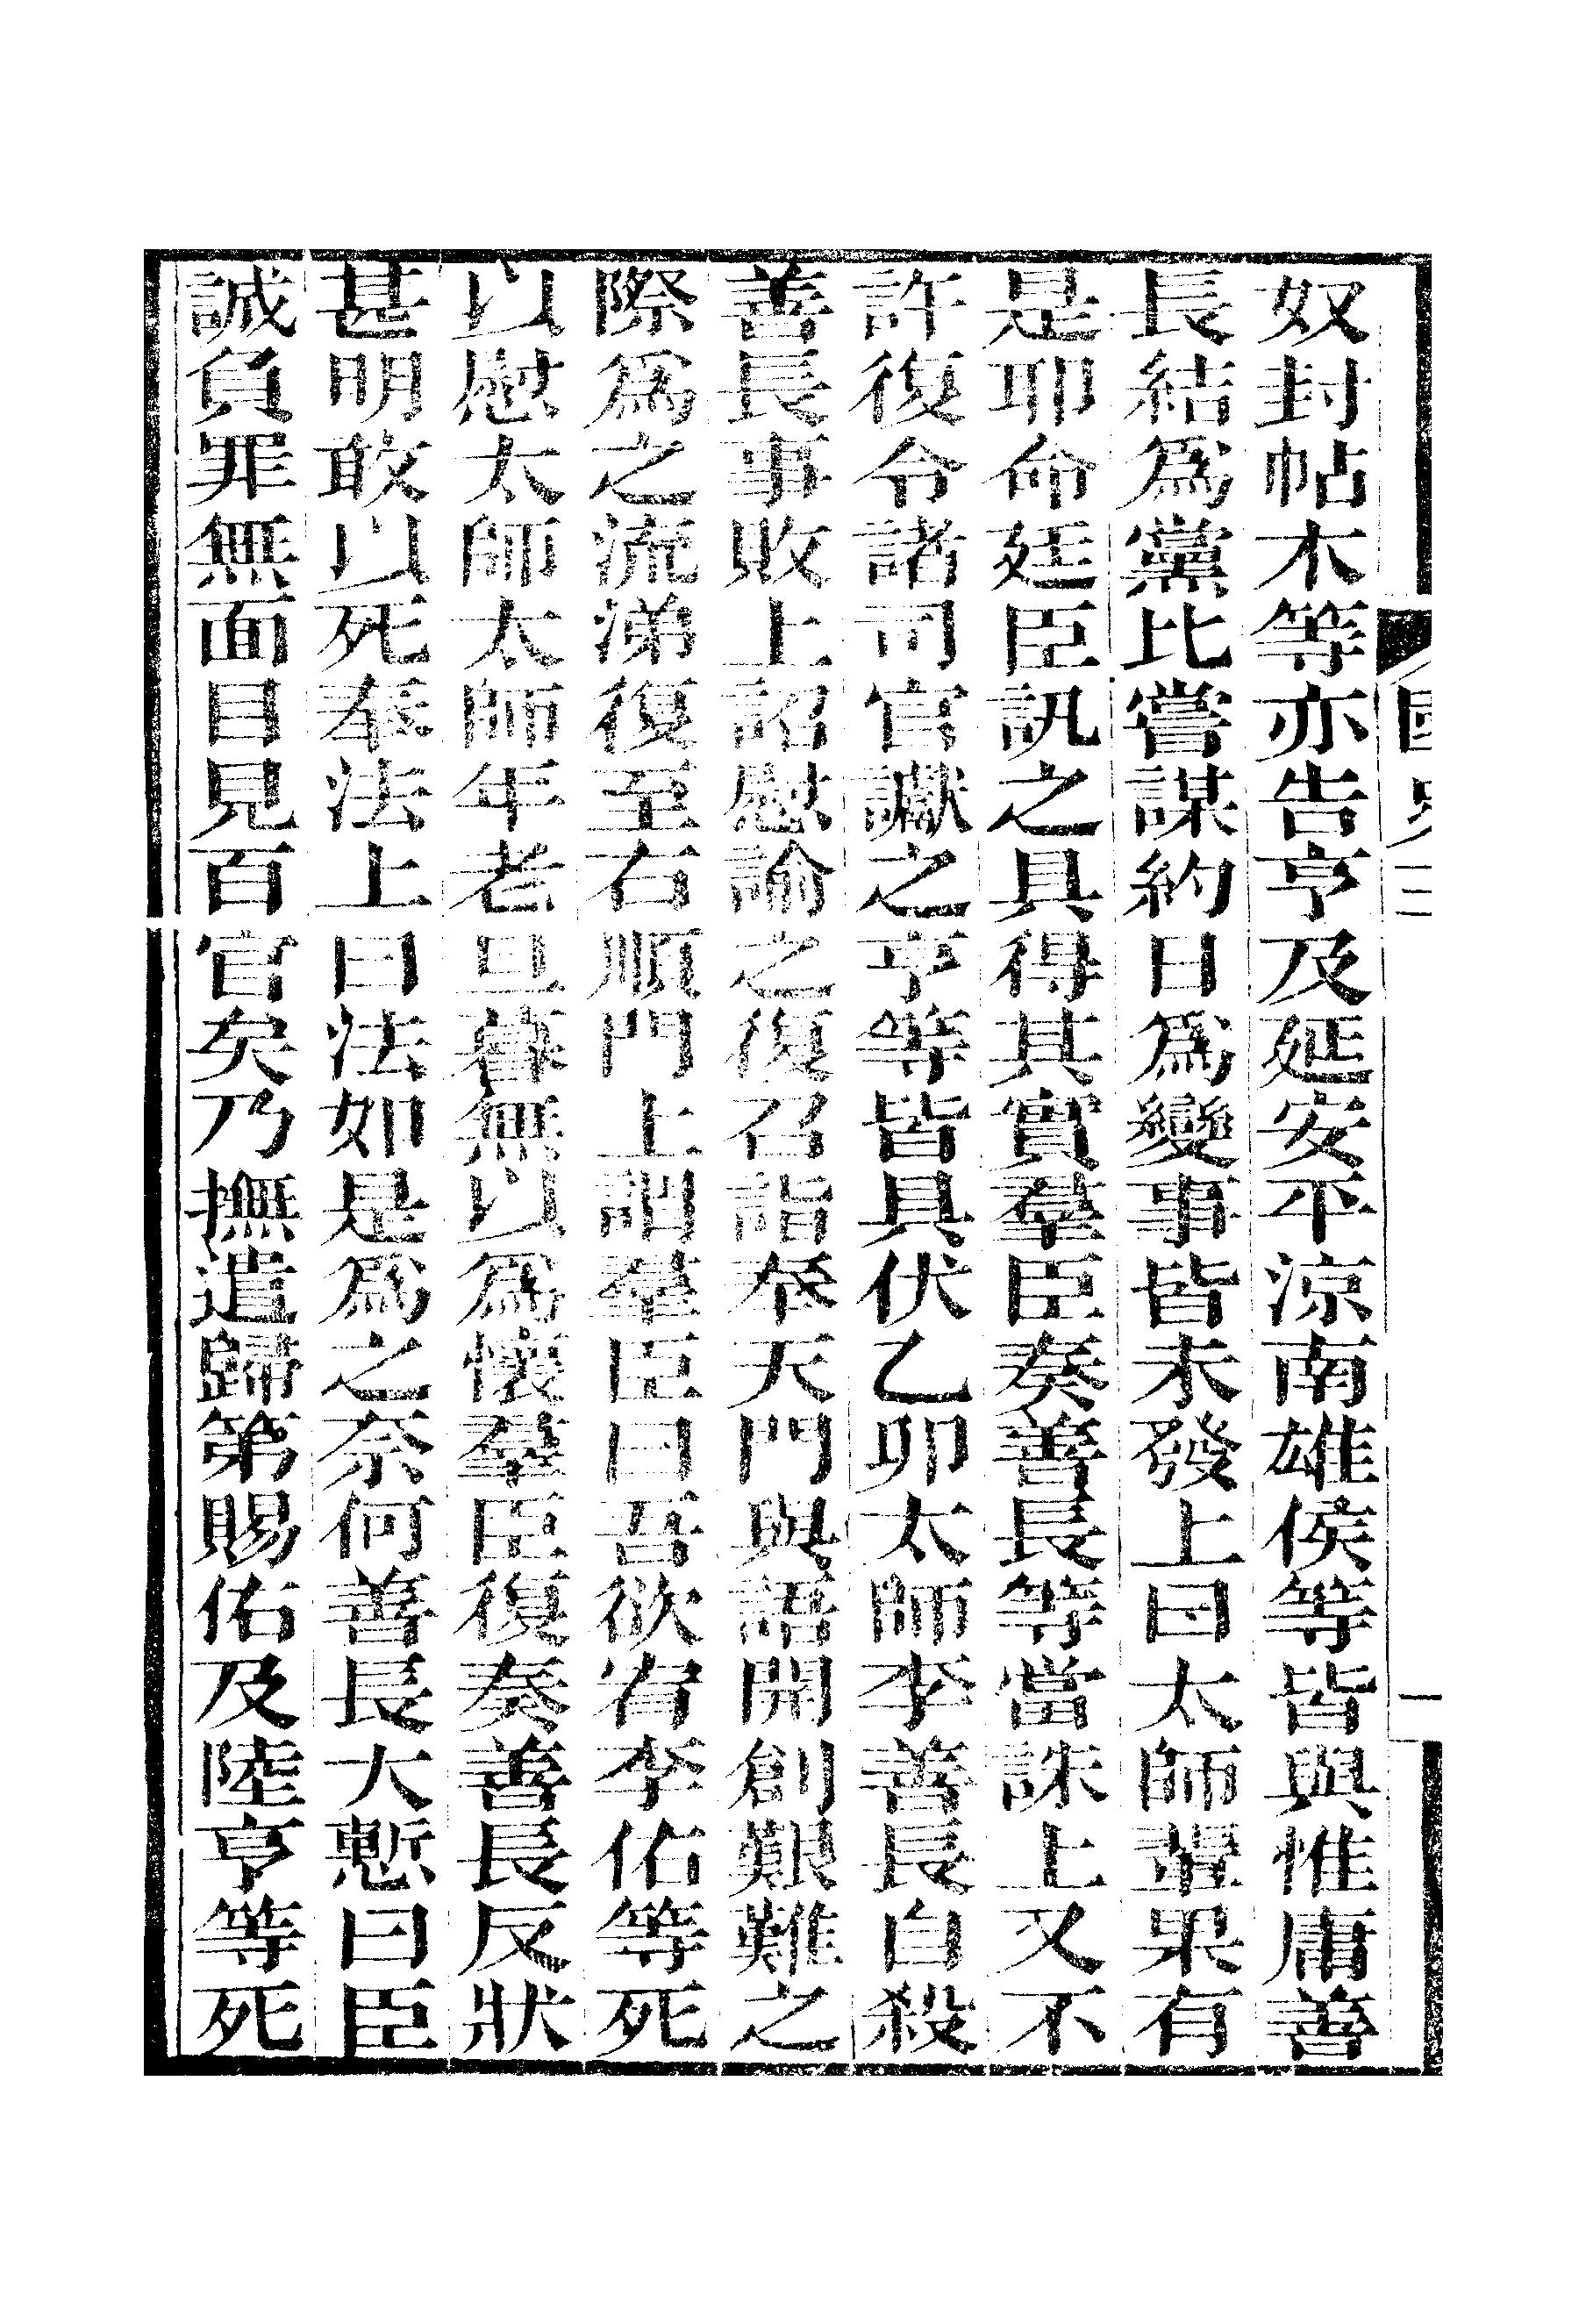 奴封帖木等亦告亨及延安平涼南雄侯等皆與惟庸善
長結爲黨比嘗謀約日爲變事皆未發上曰太師輩果有
是耶命廷臣訊之具得其實羣臣奏善長等當誅上又不
許復令諸司官讞之亨等皆具伏乙卯太師李善長自殺
善長事敗上詔慰諭之復召詣奉天門與語開創艱難之
際爲之流涕復至右順門上詔羣臣曰吾欲宥李佑等死
以慰太師太師年老旦暮無以爲懷羣臣復奏善長反狀
甚明敢以死奉法上曰法如是爲之奈何善長大慙曰臣
誠負罪無面目見百官矣乃撫遣歸第賜佑及陸亨等死